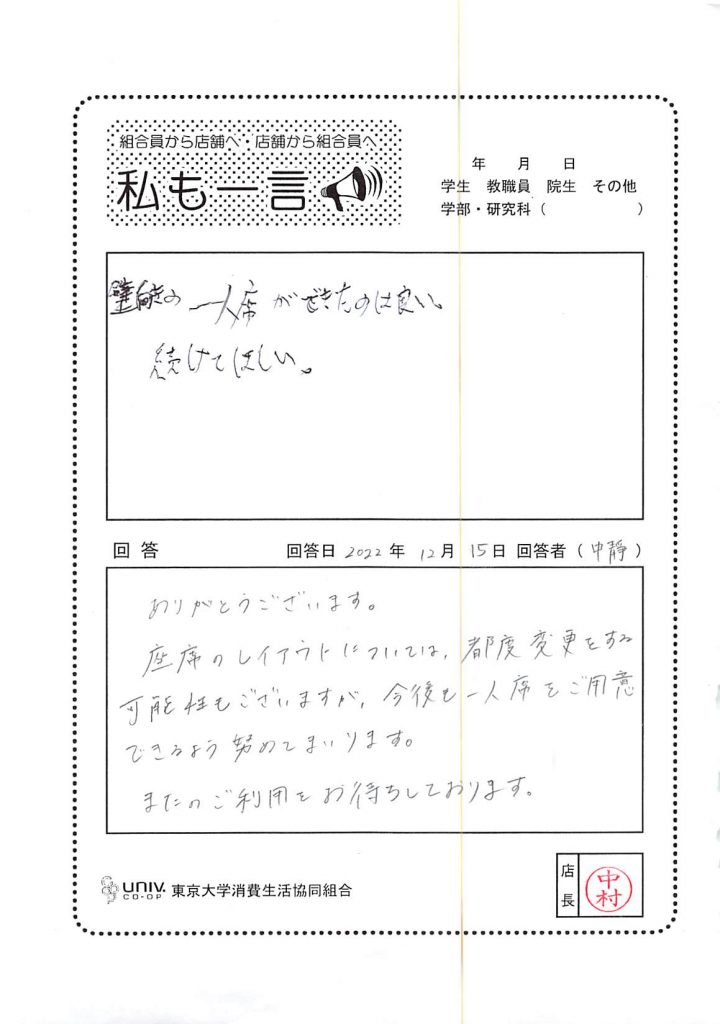 組合員から店舗へ・店舗から組合員へ
私も一言
年 月 日
学生 教職員 院生 その他
学部・研究科（ ）
壁向きの 一人席ができたのは良い。
続けてほしい。
回答 回答日 2022年 12月 15日 回答者（中静）
ありがとうございます。
座席のレイアウトについては、都度変更をする
可能性もございますが、今後も一人席をご用意
できるよう努めてまいります。
またのご利用をお待ちしております。
UNIV. CO-OP 東京大学消費生活協同組合
店長 中村